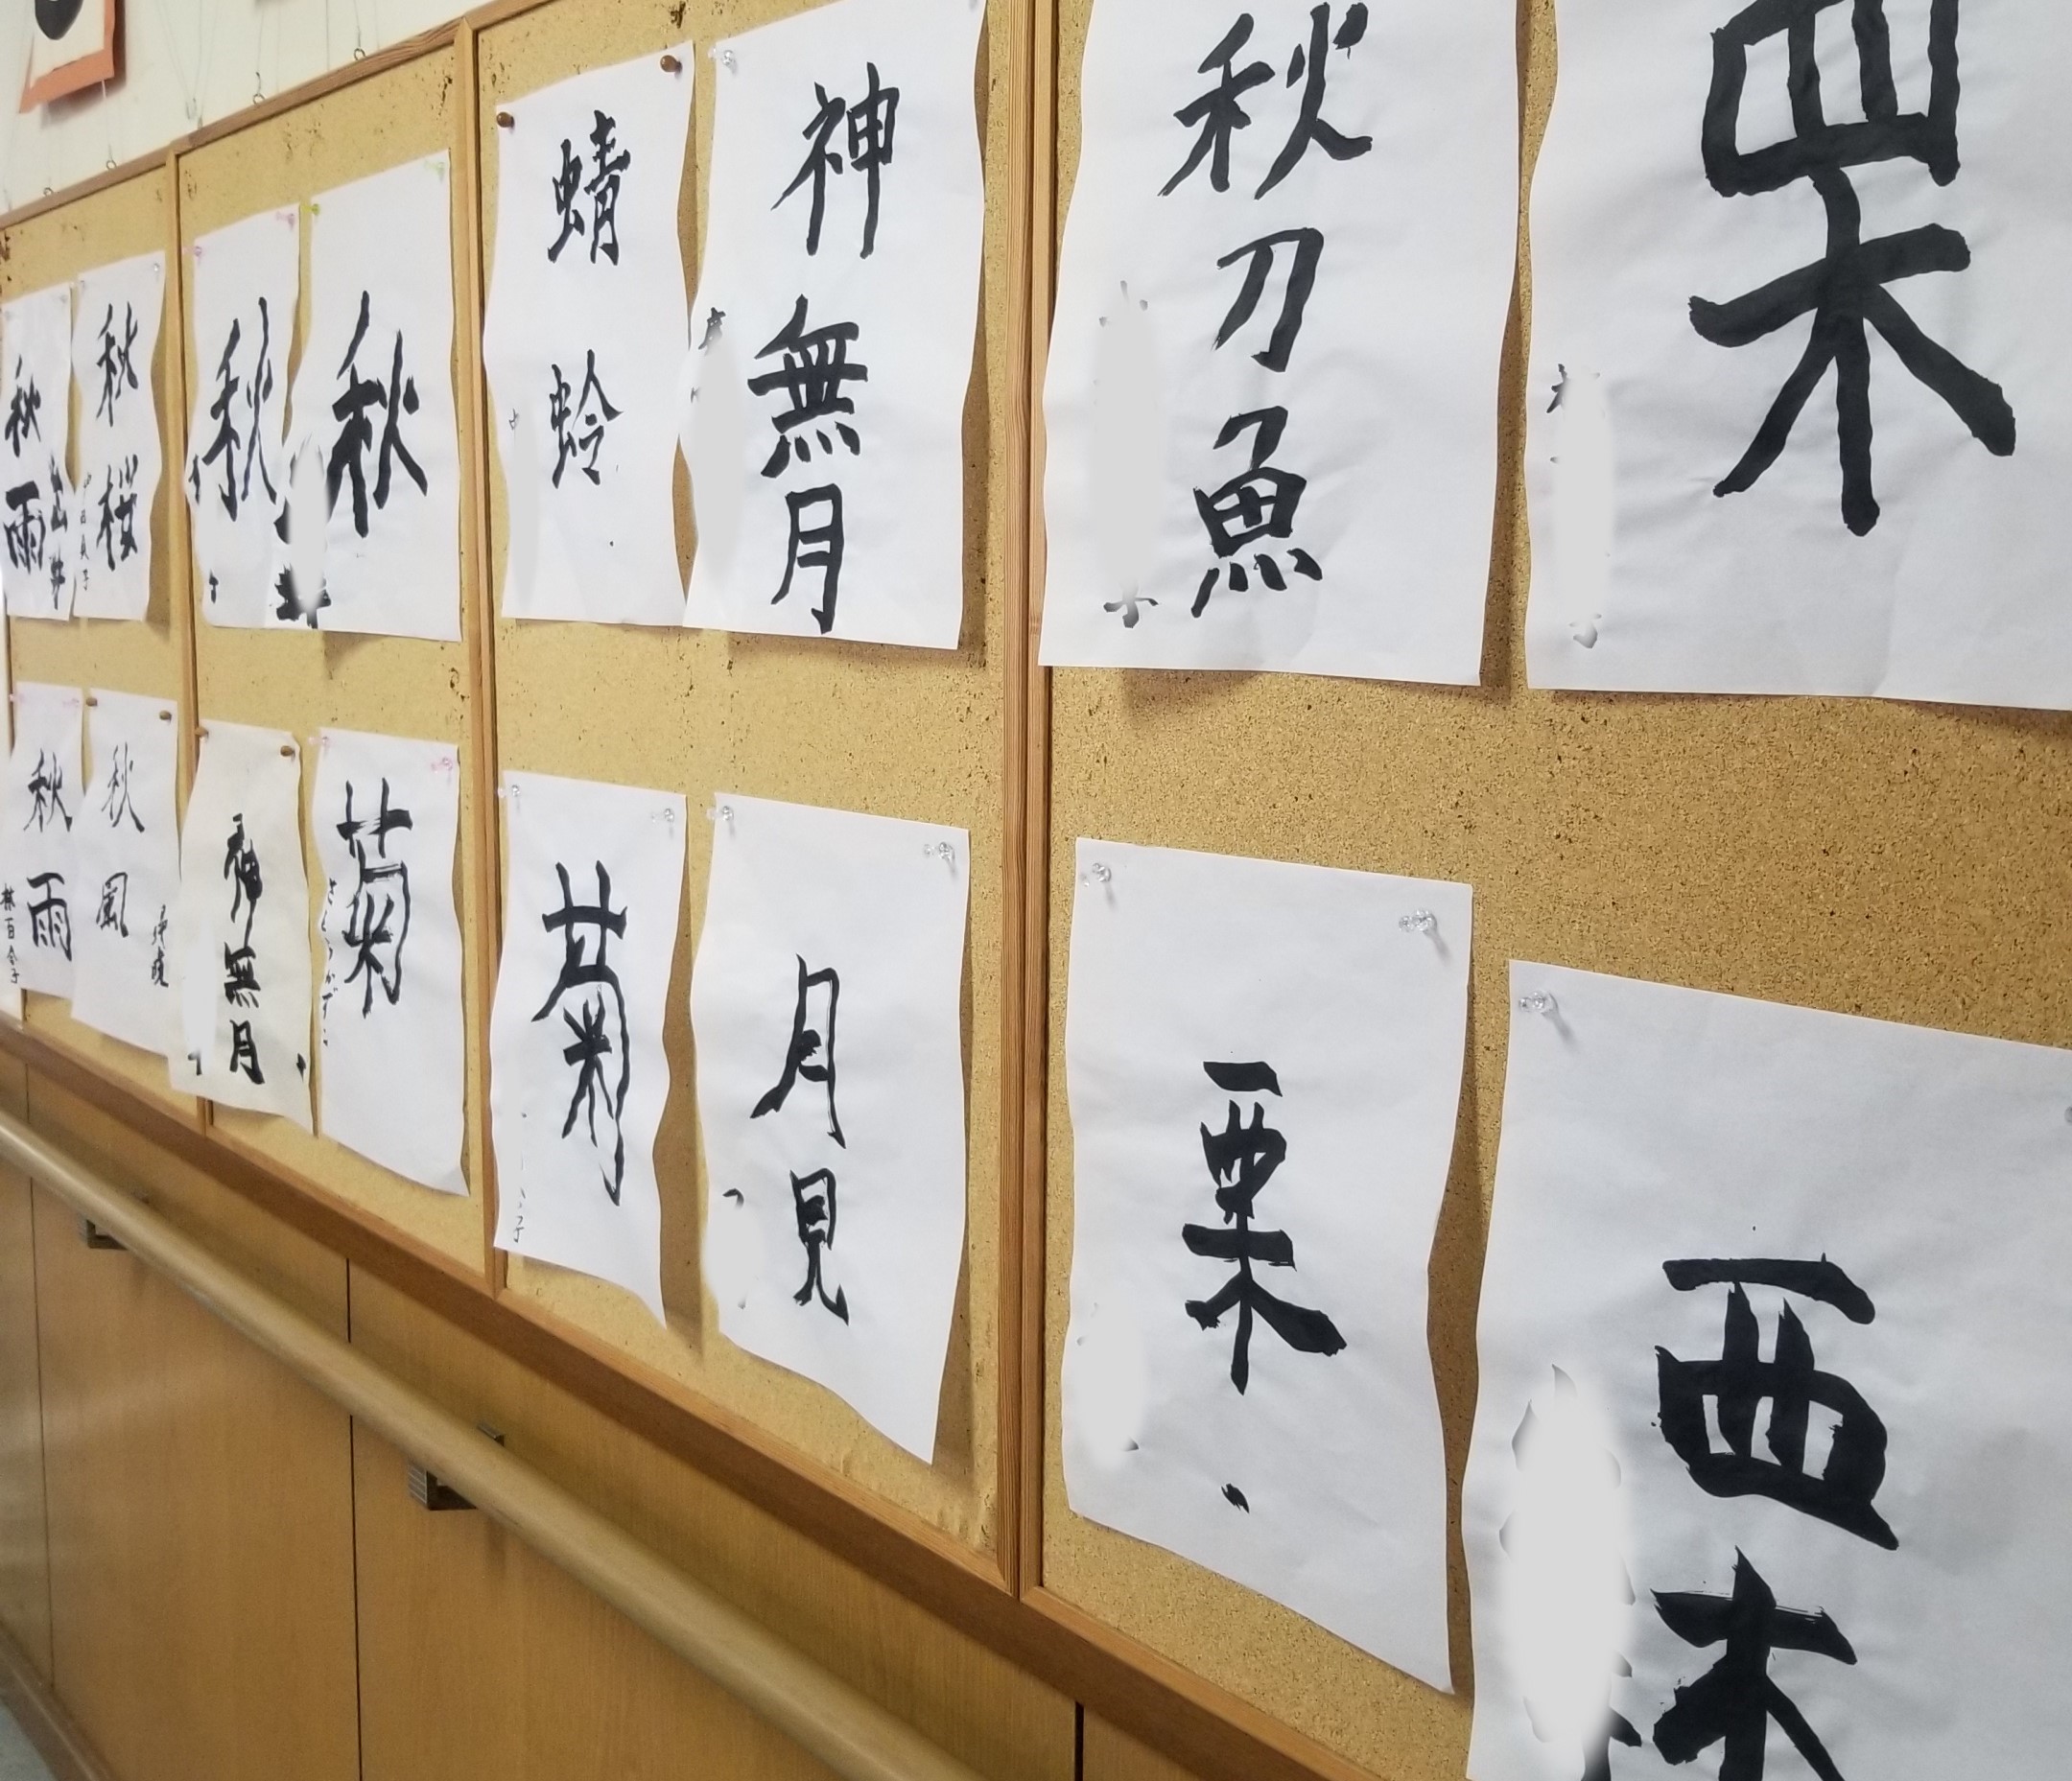 栗
秋刀魚
神無月
蜻蛉
秋
秋
秋桜
秋雨
栗
栗
月見
菊
菊
さとうかずこ
神無月
秋風
秋雨
林百合子